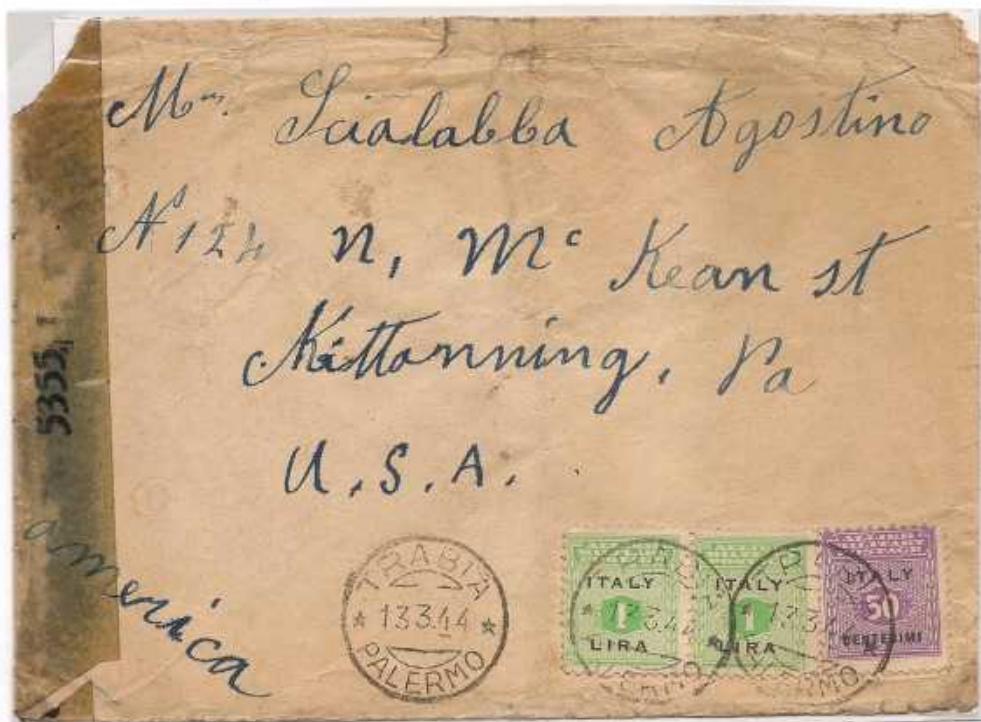 Mr. Scialabba Agostino
N 124 n, Mc Kean st
Kittanning, Pa
U.S.A.
america
5355
TRABIA
* 13.3.44 *
PALERMO
ITALY
1
LIRA
ITALY
1
LIRA
ITALY
50
CENTESIMI